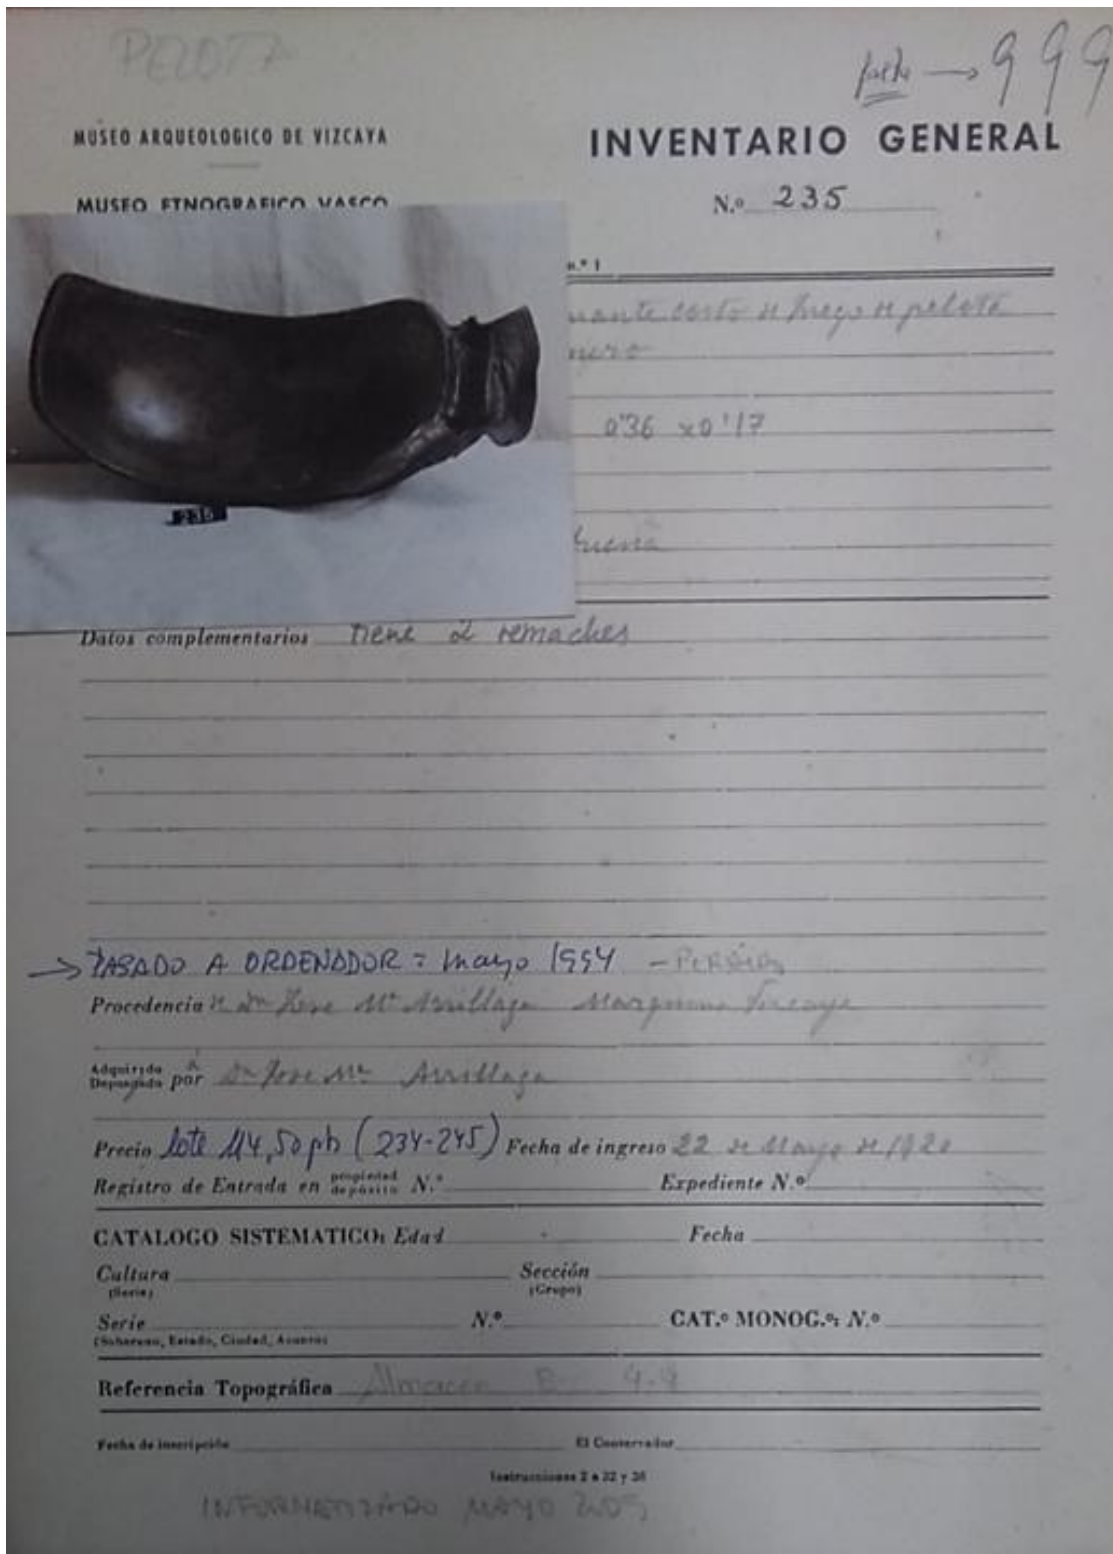 PELOTA
→ 999
MUSEO ARQUEOLOGICO DE VIZCAYA
INVENTARIO GENERAL
MUSEO ETNOGRAFICO VASCO
N.º 235
n.º 1
guante corto de juego de pelota
0'36 x 0'17
235
buena
Datos complementarios tiene 2 remaches
→ PASADO A ORDENADOR = mayo 1994
Procedencia de Dn Jose Mª Arrillaga Marquina Vizcaya
Adquirido
Depositado por Dn Jose Mª Arrillaga
Precio lote 114,50 pts (234-245) Fecha de ingreso 22 de Mayo de 1920
Registro de Entrada en propiedad depósito N.º Expediente N.º
CATALOGO SISTEMATICO: Edad Fecha
Cultura Sección
(Serie) (Grupo)
Serie N.º CAT.º MONOG.º: N.º
(Soberano, Estado, Ciudad, Asunto)
Referencia Topográfica Almacén B- 4-8
Fecha de inscripción El Conservador
Instrucciones 2 a 32 y 36
INFORMATIZADO MAYO 2003